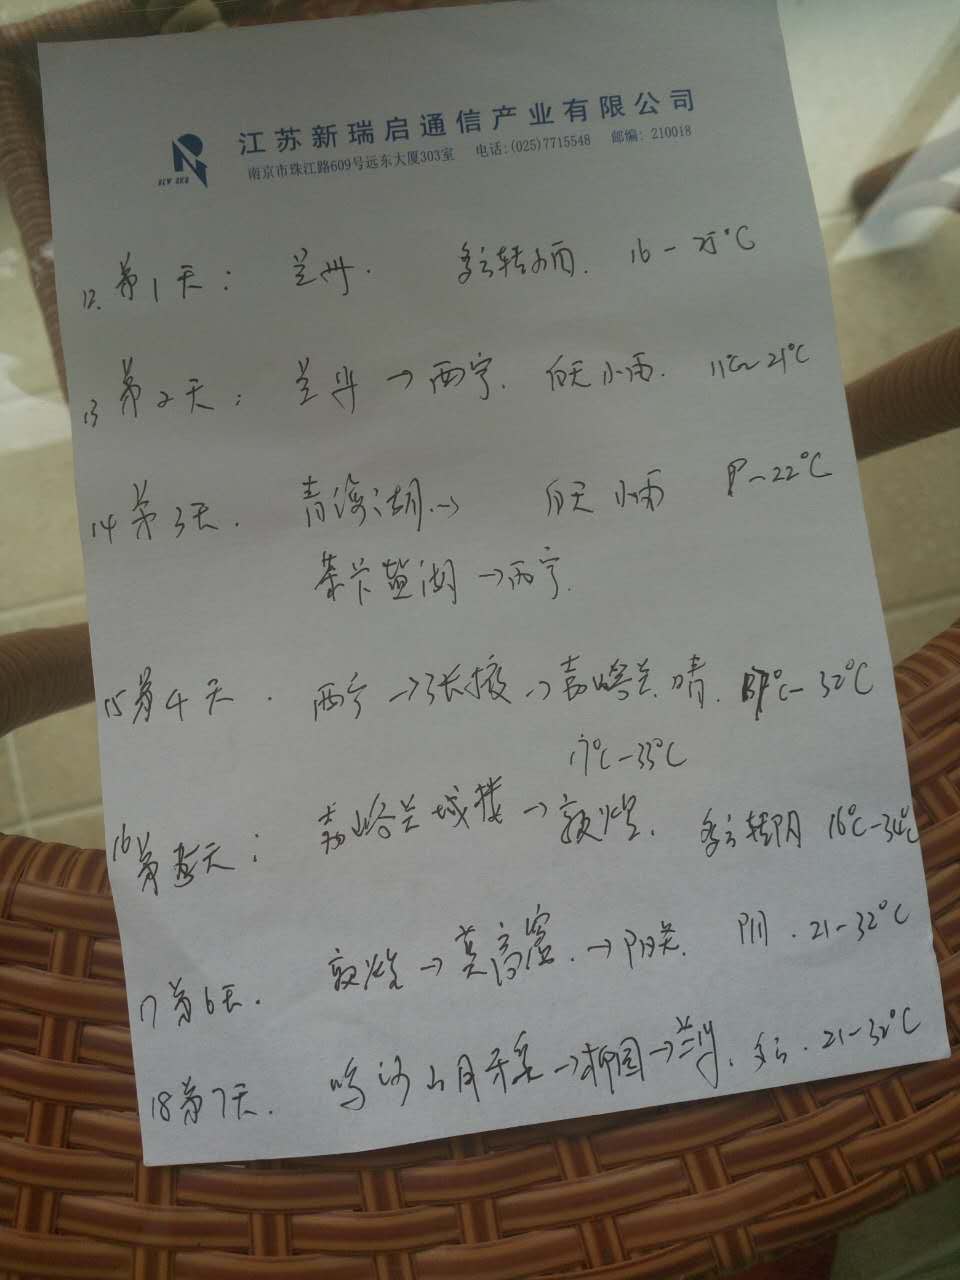 江苏新瑞启通信产业有限公司
南京市珠江路609号远东大厦303室 电话:(025)7715548 邮编: 210018
NEW SKR
12. 第1天: 兰州. 多云转小雨. 16-25°C
13 第2天: 兰州→西宁. 白天小雨. 11℃~21°C
14 第3天. 青海湖.→ 白天小雨 8-22°C
茶卡盐湖→西宁.
15 第4天. 西宁→张掖→嘉峪关. 晴. 17°C-32°C
17°C-33°C
16 第5天: 嘉峪关城楼→敦煌. 多云转阴 16°C-34°C
17 第6天. 敦煌→莫高窟.→阳关. 阴. 21-32°C
18 第7天. 鸣沙山月牙泉→柳园→兰州. 多云. 21-32°C